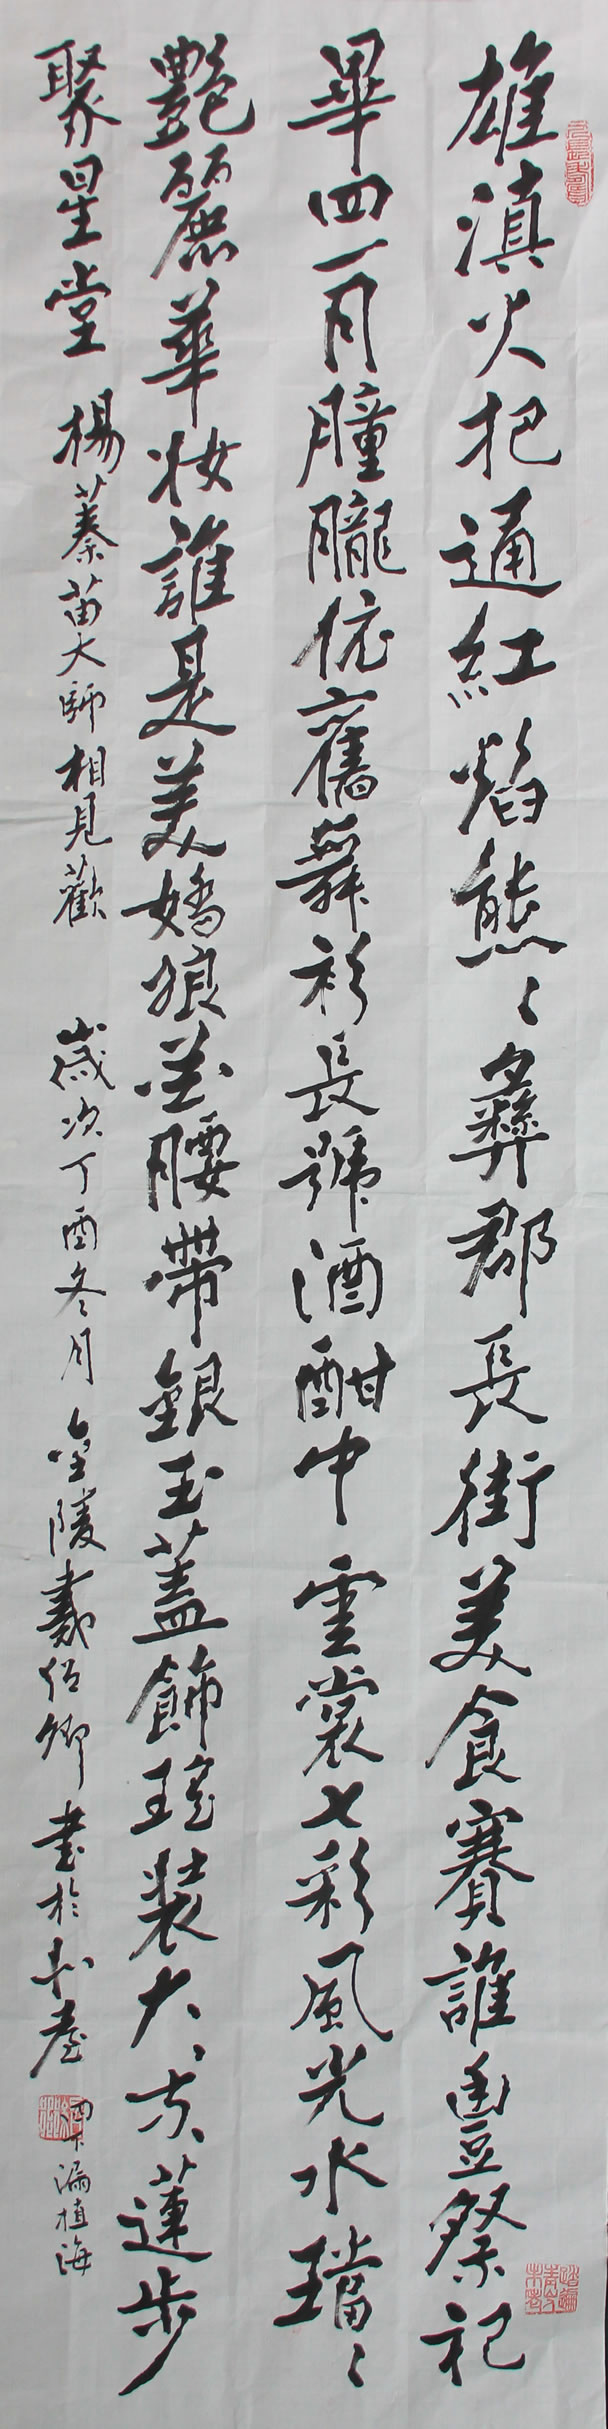 雄滇火把通紅焰熊〻彝郡長街美食賽誰豐祭祀
畢四一月朣朧依舊舞衫長號酒酣中雲裳七彩風光水璫〻
艷麗華妝誰是美嬌娘 腰帶銀玉蓋飾 裝大〻方〻蓮步
聚星堂 楊蓁苗大師相見歡 歲次丁酉冬月金陵戴 卿書於
四下漏植海